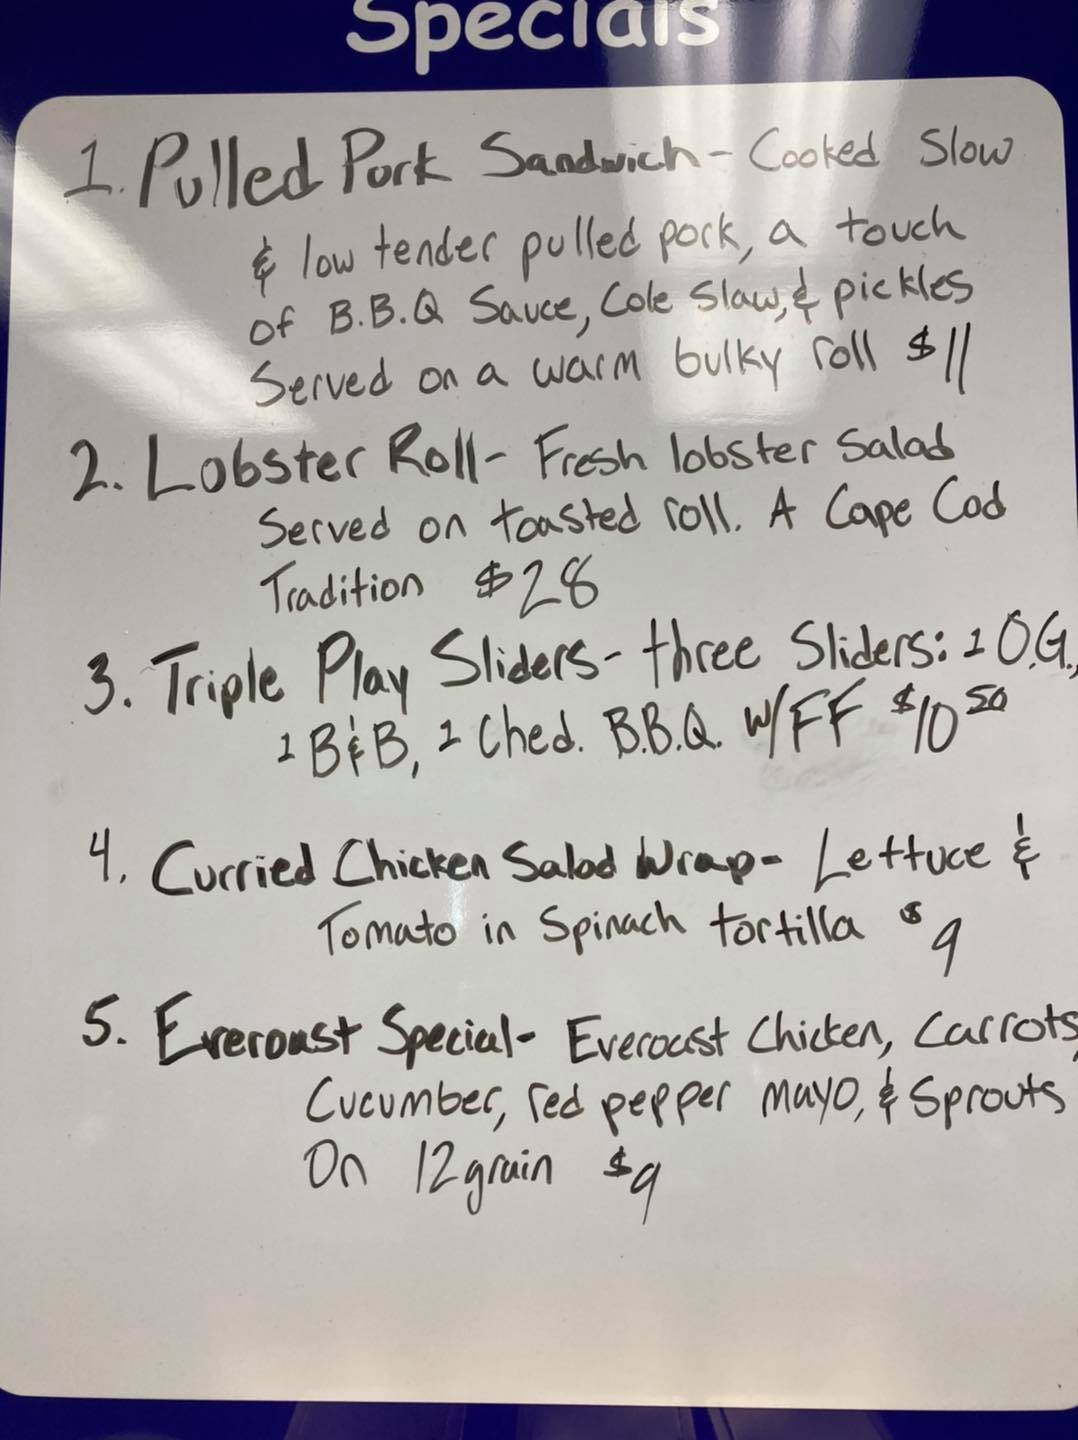 Specials
1. Pulled Pork Sandwich - Cooked Slow
& low tender pulled pork, a touch
of B.B.Q Sauce, Cole Slaw, & pickles
Served on a warm bulky roll $11
2. Lobster Roll - Fresh lobster Salad
Served on toasted roll. A Cape Cod
Tradition $28
3. Triple Play Sliders - three Sliders: 1 O.G.,
1 B&B, 1 Ched. B.B.Q. W/FF $10 50
4. Curried Chicken Salad Wrap - Lettuce &
Tomato in Spinach tortilla $9
5. Everoast Special - Everoast Chicken, Carrots,
Cucumber, red pepper mayo, & Sprouts
On 12 grain $9